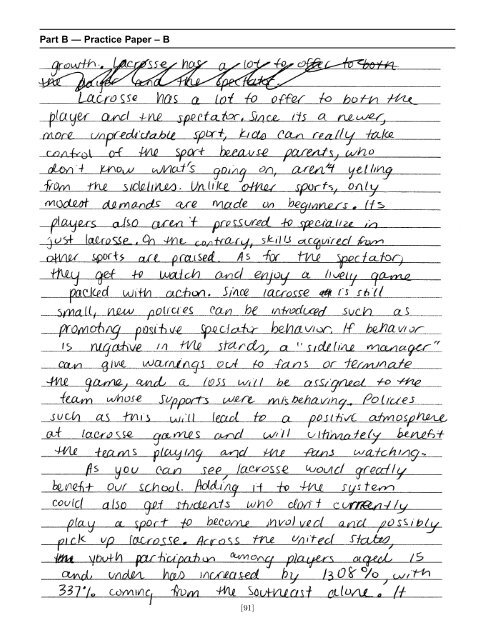 Part B — Practice Paper – B
growth. Lacrosse has a lot to offer to both
the player and the spectator.
Lacrosse has a lot to offer to both the
player and the spectator. Since its a newer,
more unpredictable sport, kids can really take
control of the sport because parents, who
don't know what's going on, aren't yelling
from the sidelines. Unlike other sports, only
modest demands are made on beginners. Its
players also aren't pressured to specialize in
just lacrosse. On the contrary, skills acquired from
other sports are praised. As for the spectator,
they get to watch and enjoy a lively game
packed with action. Since lacrosse is still
small, new policies can be introduced such as
promoting positive spectator behavior. If behavior
is negative in the stands, a "sideline manager"
can give warnings out to fans or terminate
the game, and a loss will be assigned to the
team whose supports were misbehaving. Policies
such as this will lead to a positive atmosphere
at lacrosse games and will ultimately benefit
the teams playing and the fans watching.
As you can see, lacrosse would greatly
benefit our school. Adding it to the system
could also get students who don't currently
play a sport to become involved and possibly
pick up lacrosse. Across the United States,
the youth participation among players aged 15
and under has increased by 1308%, with
337% coming from the Southeast alone. It
[91]